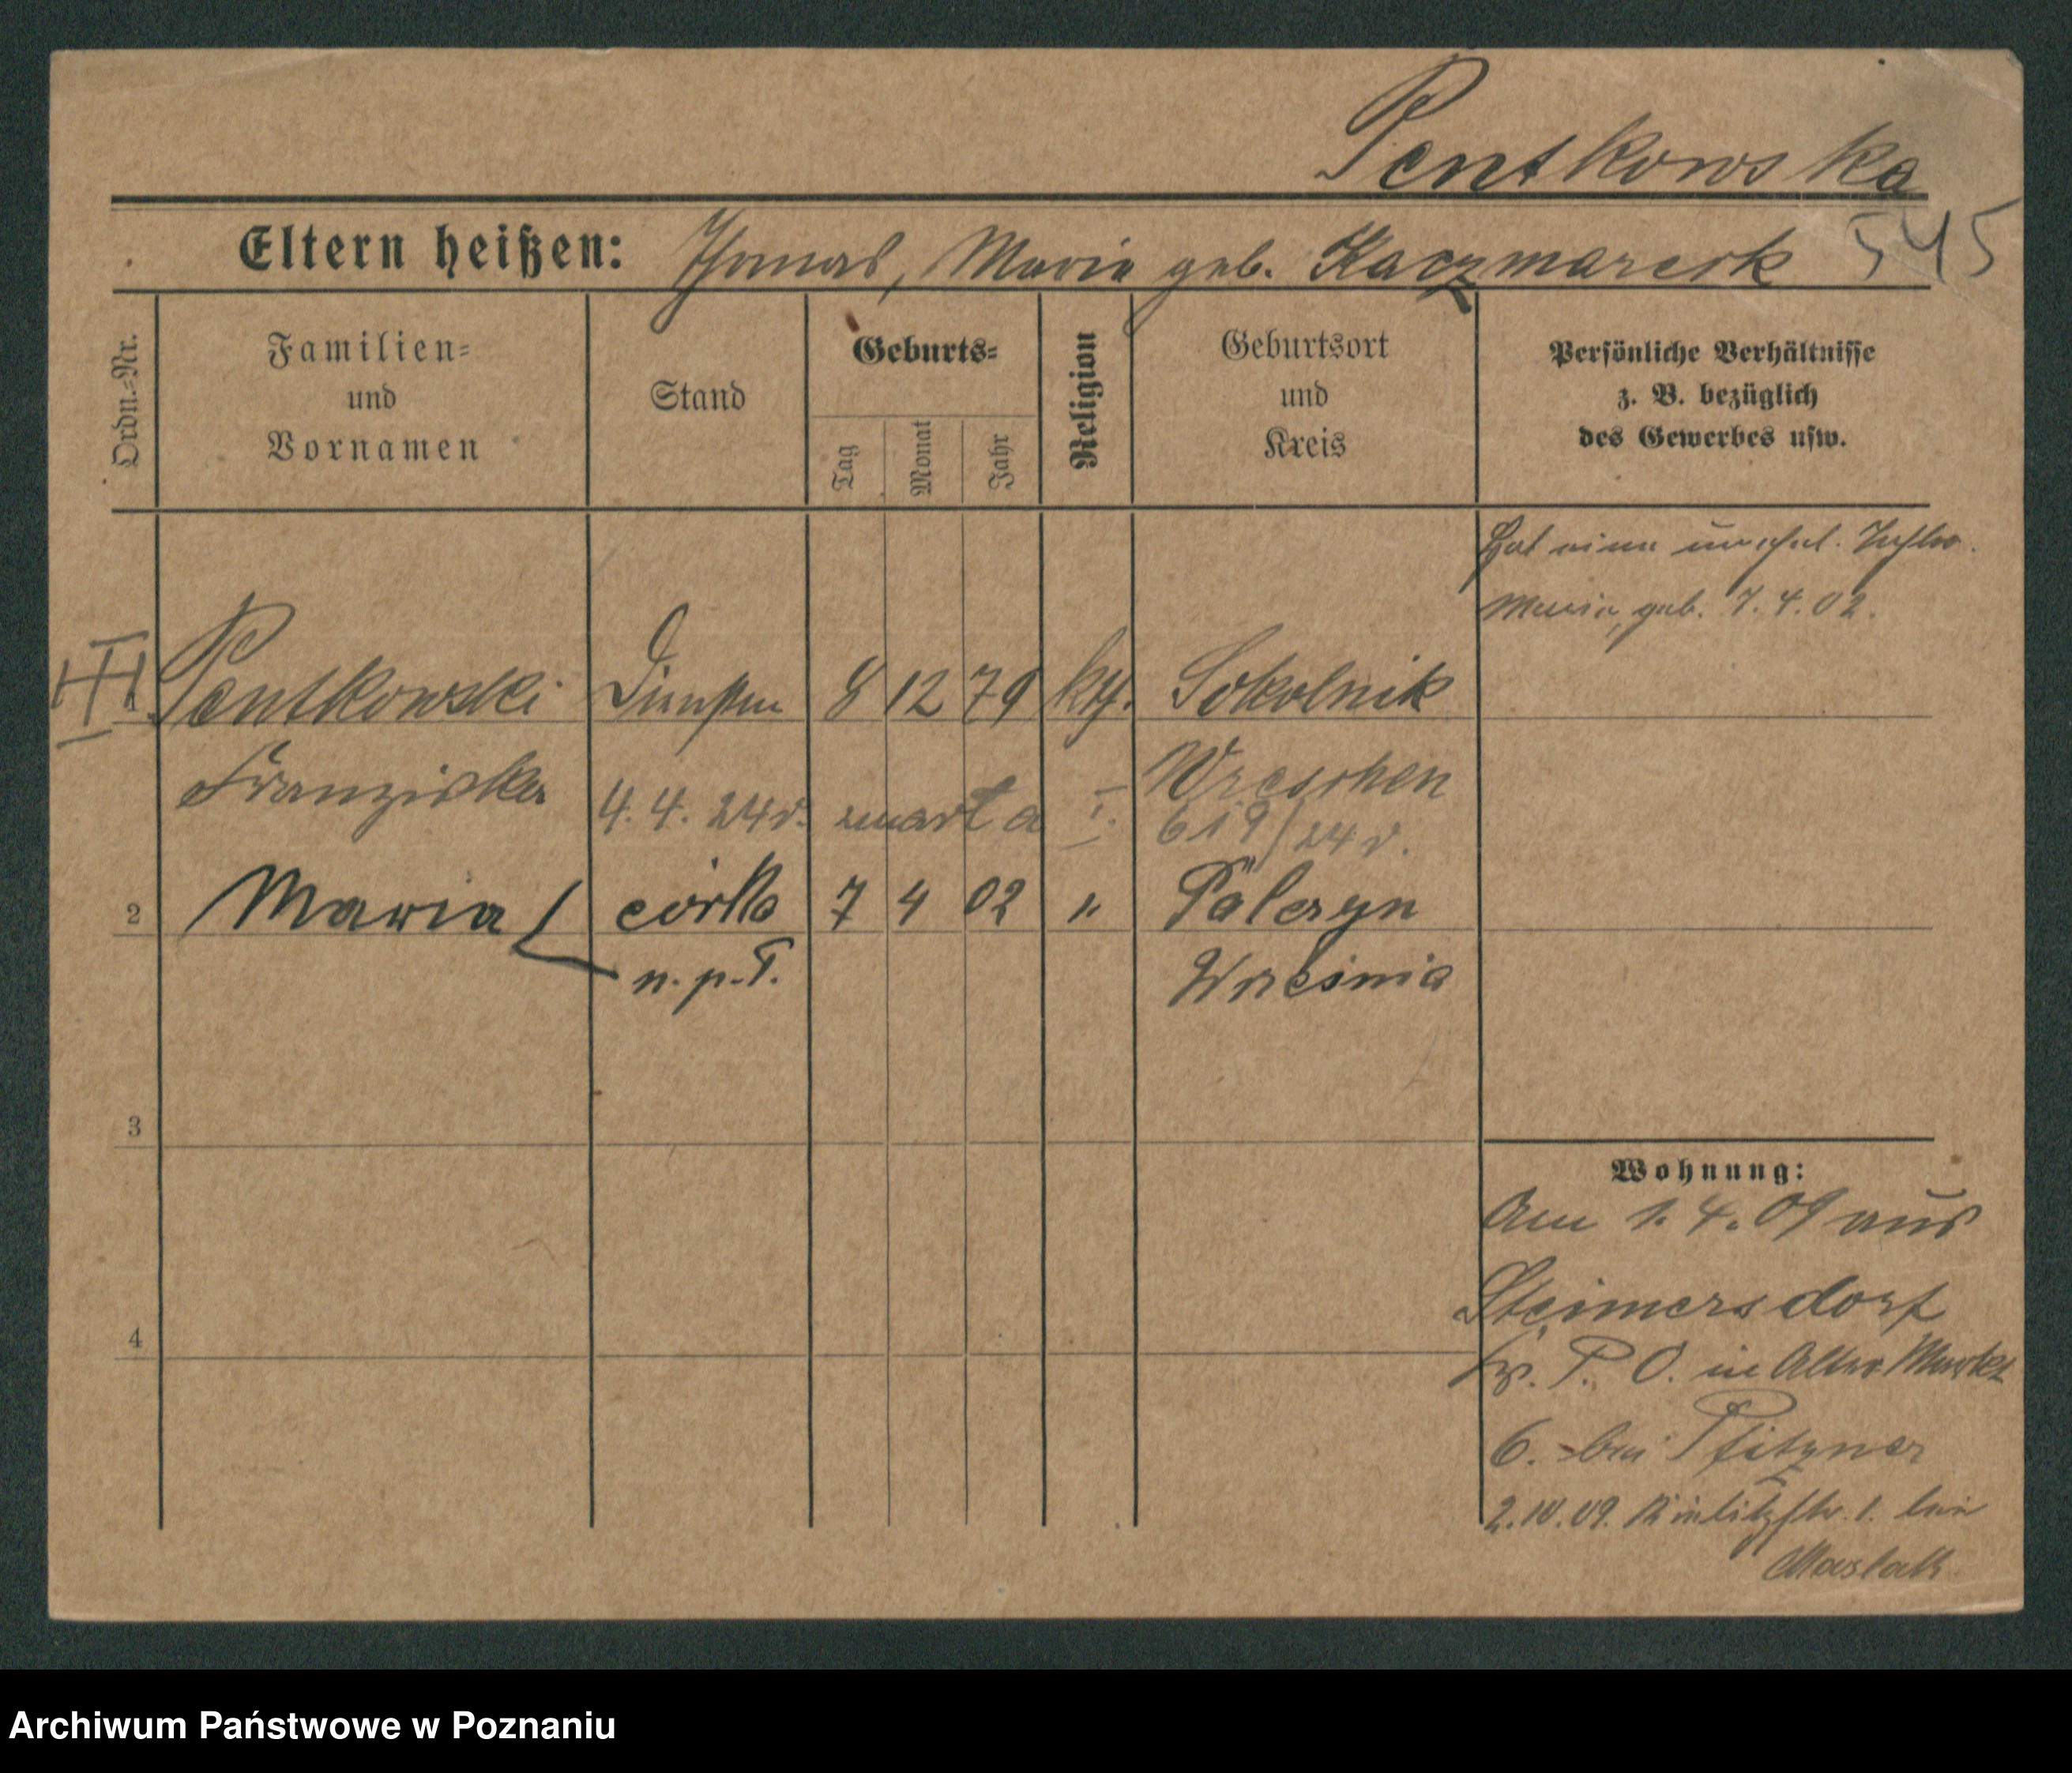 Pentkowska
Eltern heißen: Thomas, Maria geb. Kaczmarek 545
Ordn.-Nr.
Familien-
und
Vornamen
Stand
Geburts-
Tag
Monat
Jahr
Religion
Geburtsort
und
Kreis
Persönliche Verhältnisse
z. B. bezüglich
des Gewerbes usw.
Hat eine unehel. Tochter
Maria, geb. 7.4.02.
III Pentkowski 8 12 79 kth. Sokolnik
Franziska Wreschen
4.4.24r. zmarła I. 619/24 r.
2 Maria córka 7 4 02 " Palczyn
n.p.T. Września
3
4
Wohnung:
Am 1.4.09 aus
Steimersdorf
P. O. in Alter Markt
6. bei Pfitzner
2.10.09. 1. bei